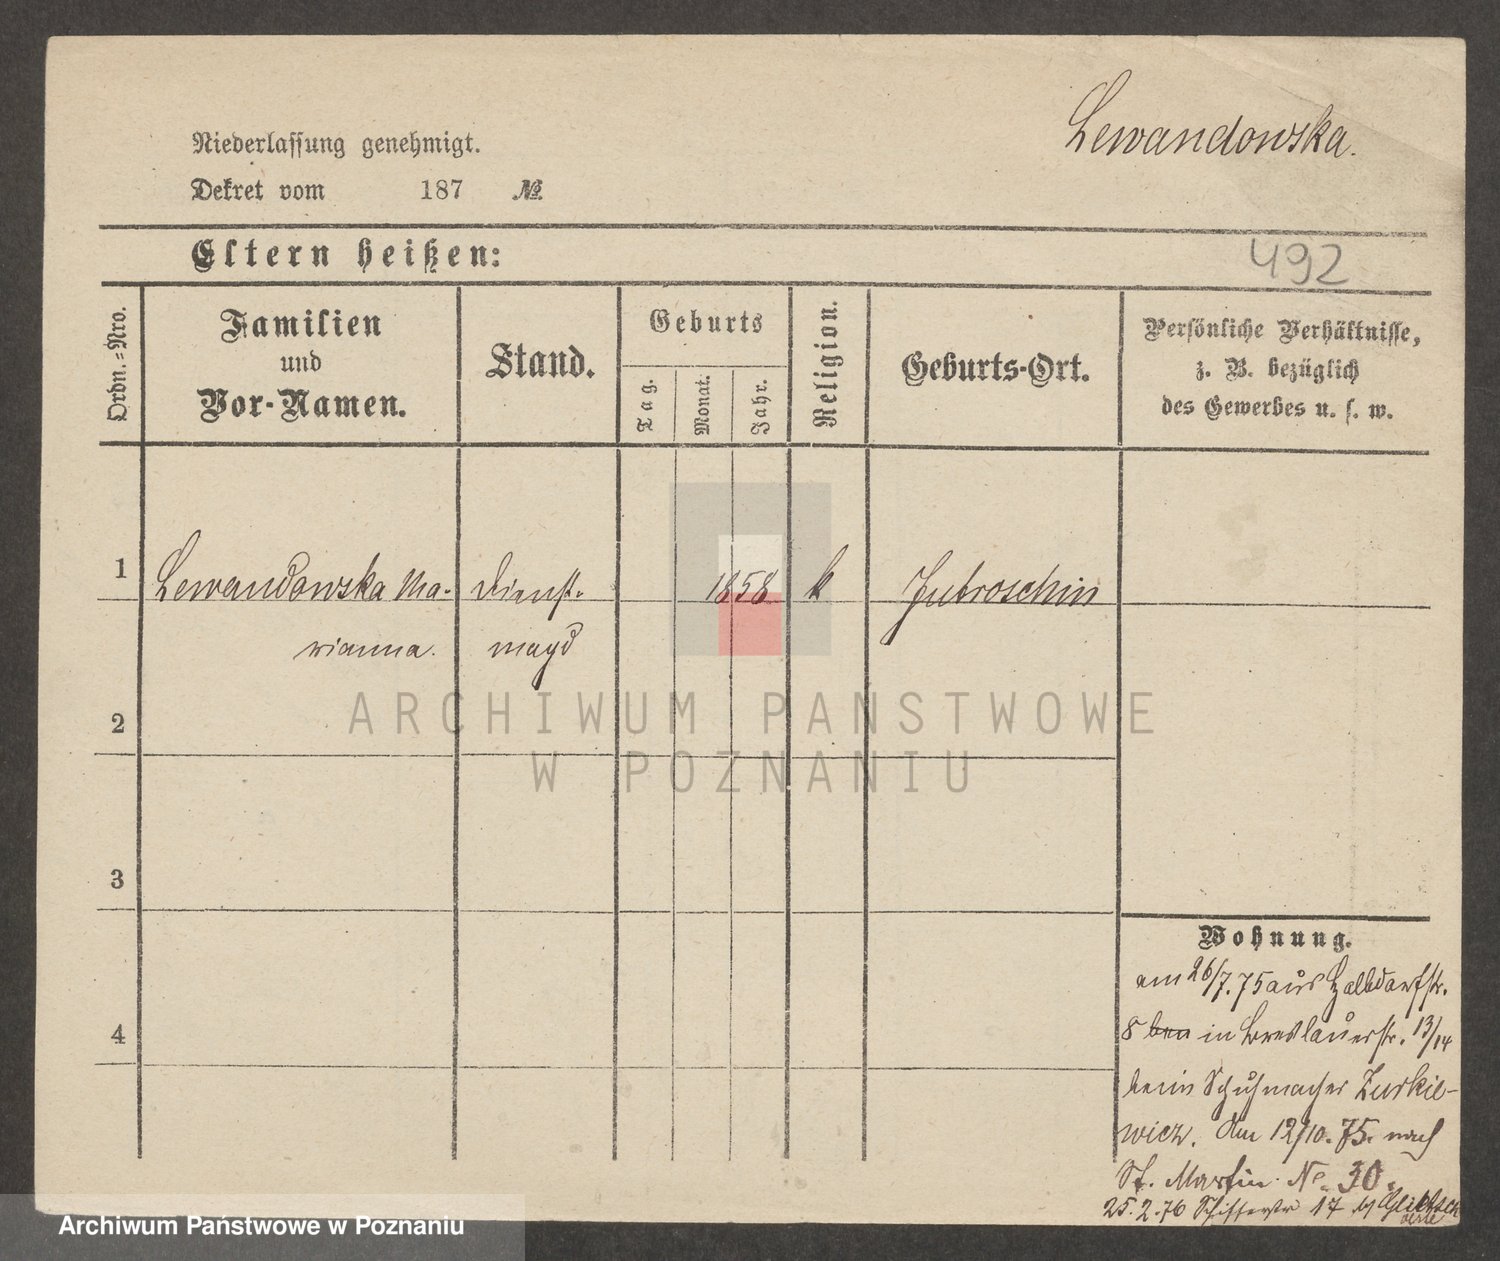 Lewandowska.
Niederlassung genehmigt.
Dekret vom 187 №
Eltern heißen:
492
Ordn.-Nro.
Familien
und
Vor-Namen.
Stand.
Geburts
Tag.
Monat.
Jahr.
Religion.
Geburts-Ort.
Persönliche Verhältnisse,
z. B. bezüglich
des Gewerbes u. s. w.
1 Lewandowska Ma- Dienst- 1858 k Jutroschin
rianna. magd
2
3
4
Wohnung.
am 26/7. 75 aus Halbdorfstr.
8 in Breslauerstr. 13/14
beim Schuhmacher
wicz. Am 12/10. 75. nach
St. Martin No. 30.
25. 2. 76 17
ARCHIWUM PAŃSTWOWE
W POZNANIU
Archiwum Państwowe w Poznaniu